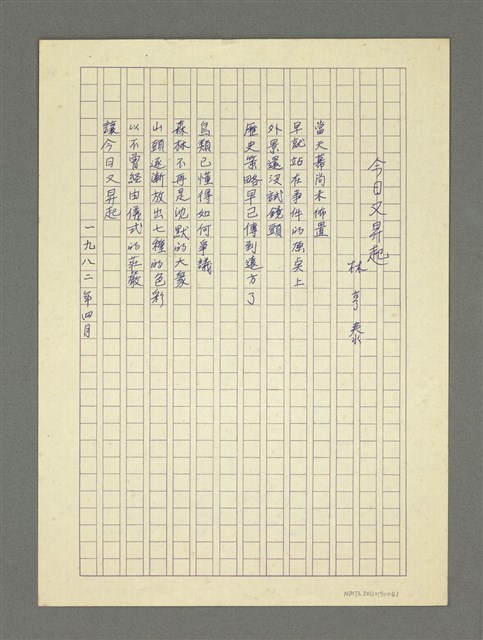 今日又昇起
林亨泰
當天幕尚未佈置
早就站在事件的原奌上
外景還沒試鏡頭
歷史策略早已傳到遠方了
鳥類已懂得如何爭議
森林不再是沈默的大衆
山頭逐漸放出七種的色彩
以不曾經由儀式的莊嚴
讓今日又昇起
一九八二年四月